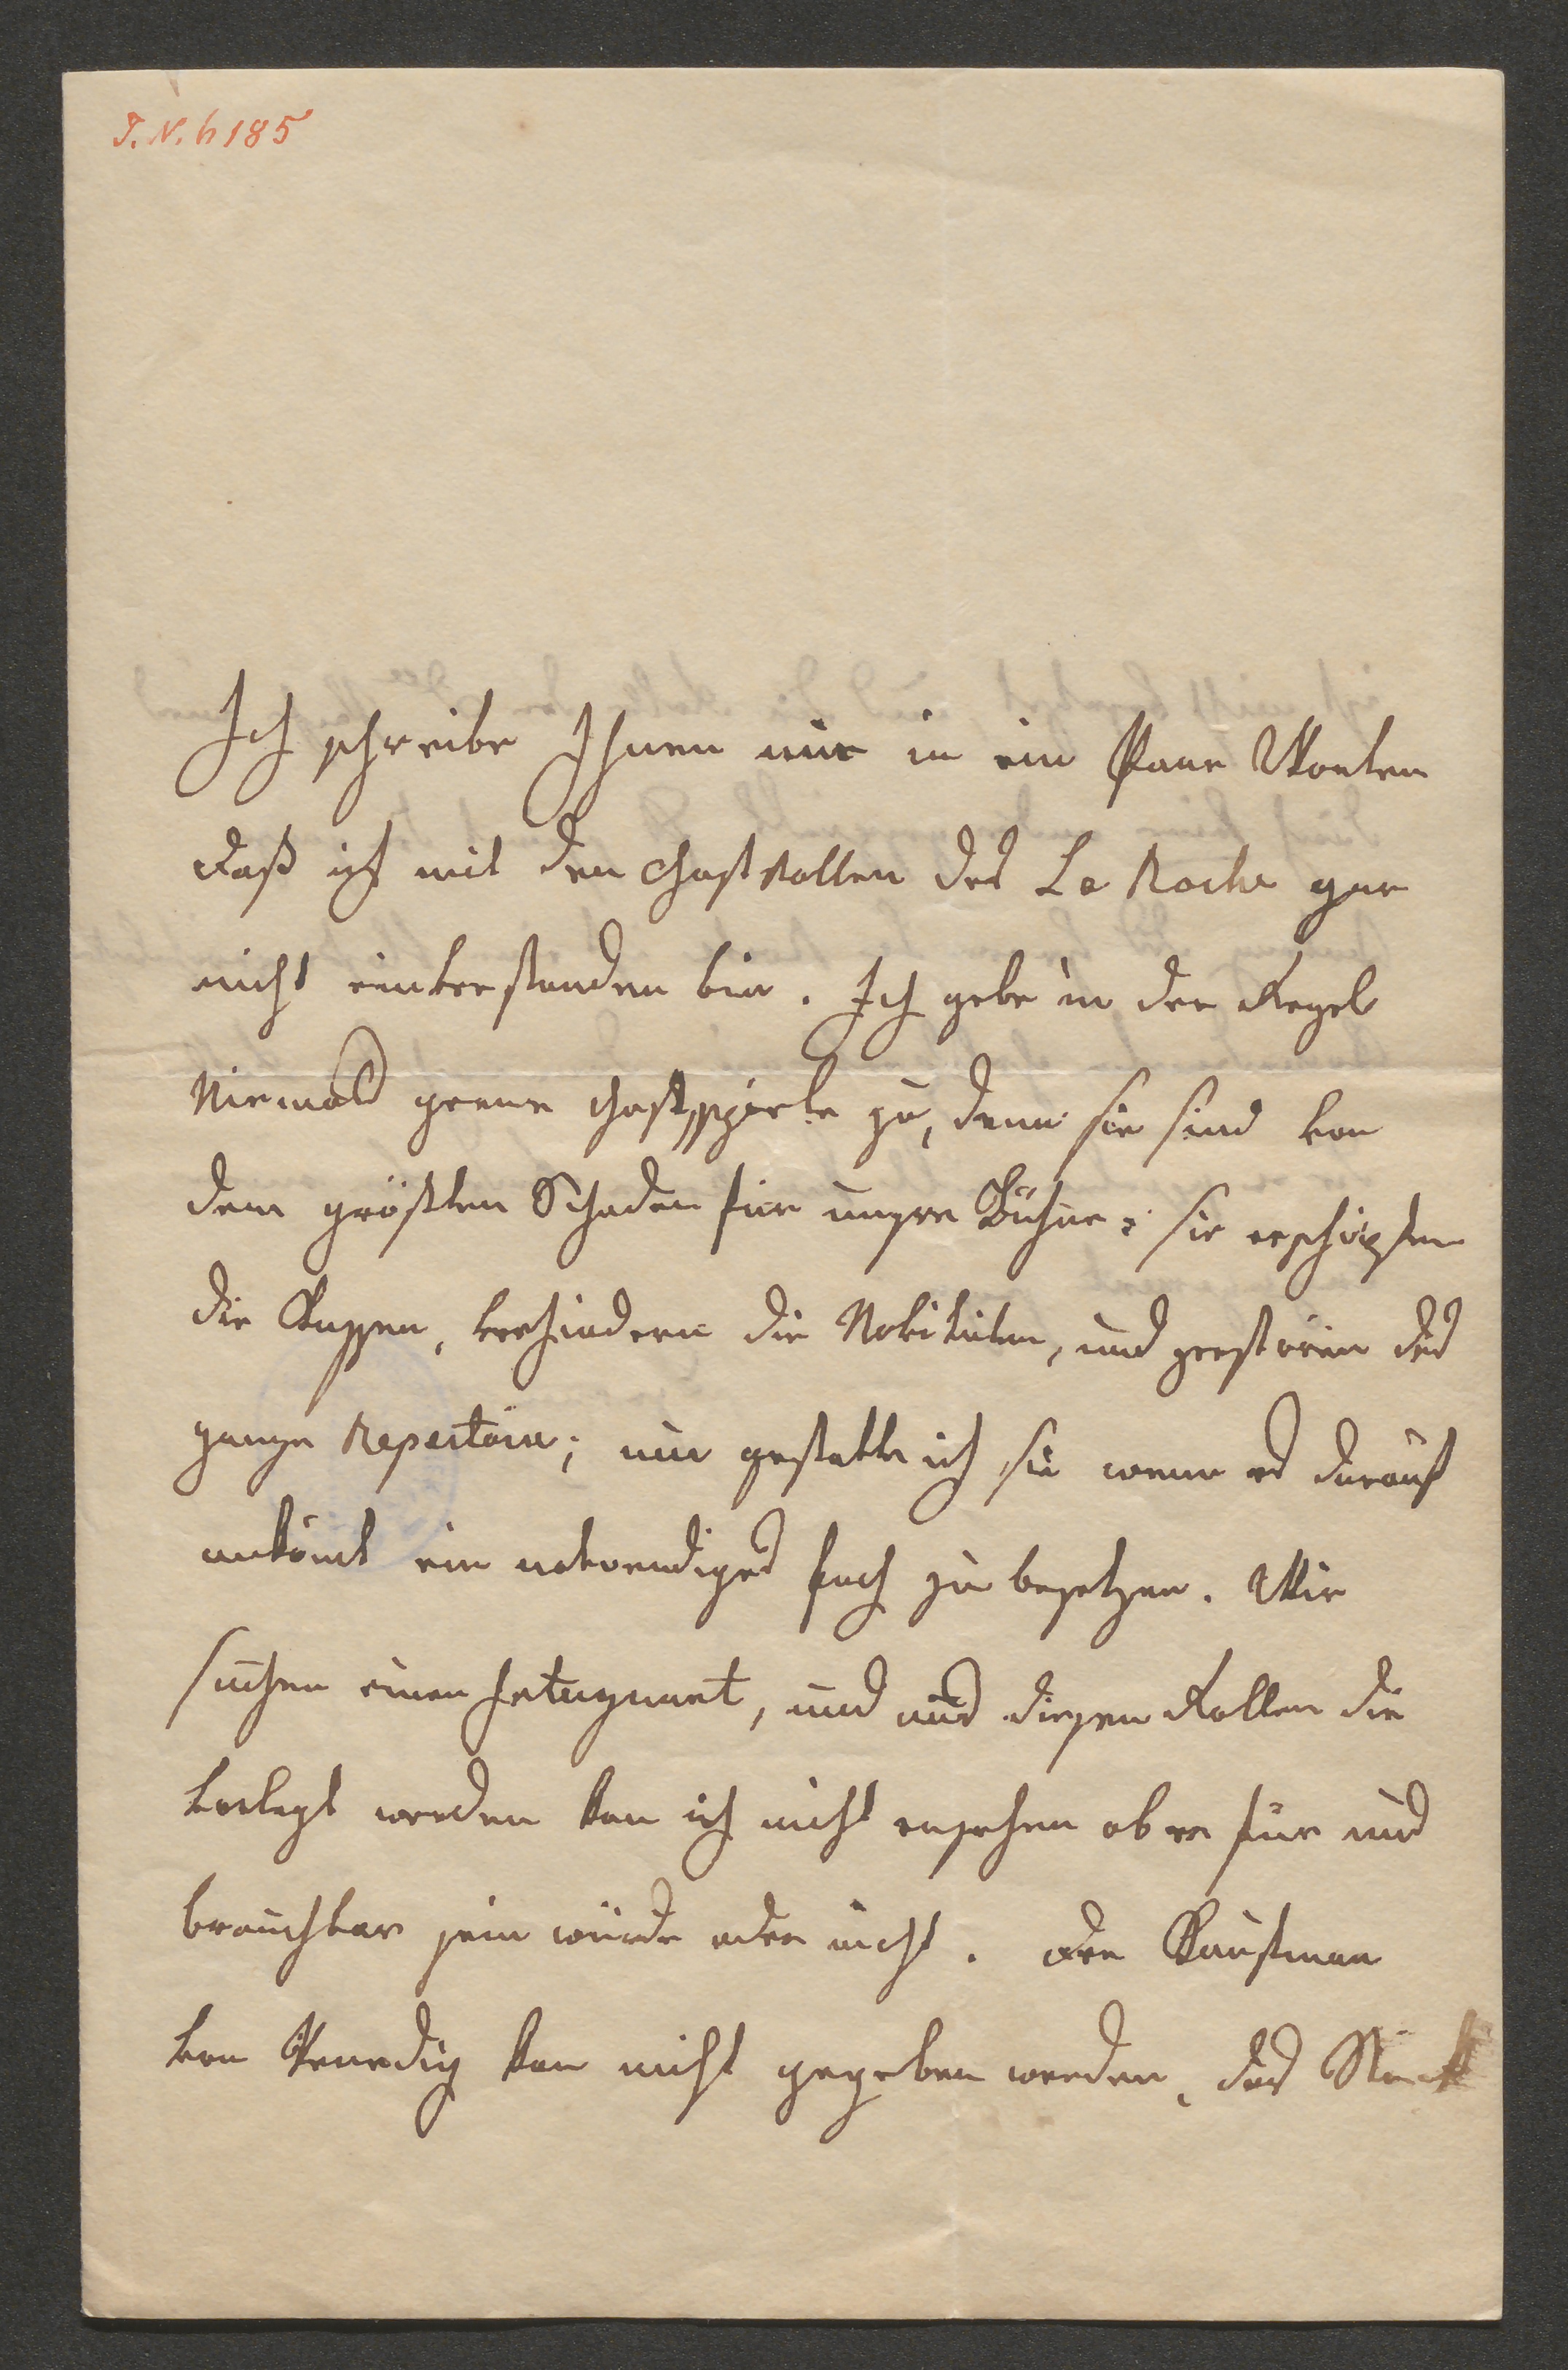 I. N. 6185
Ich schreibe Ihnen nur in ein Paar Worten
daß ich mit den Gastrollen des La Roche gar
nicht einverstanden bin. Ich gebe in der Regel
Niemals gerne Gastspiele zu, denn sie sind von
dem größten Schaden für unsre Bühne: sie erschöpfen
die Kassen, verhindern die Novitäten, und zerstören das
ganze Repertoire; nur gestatte ich sie wenn es darauf
ankömt ein notwendiges Fach zu besetzen. Wir
suchen einen und aus diesen Rollen die
verlegt werden kan ich nicht ersehen ob er für uns
brauchbar sein würde oder nicht. Der Kaufman
von Venedig kan nicht gegeben werden, das Stück